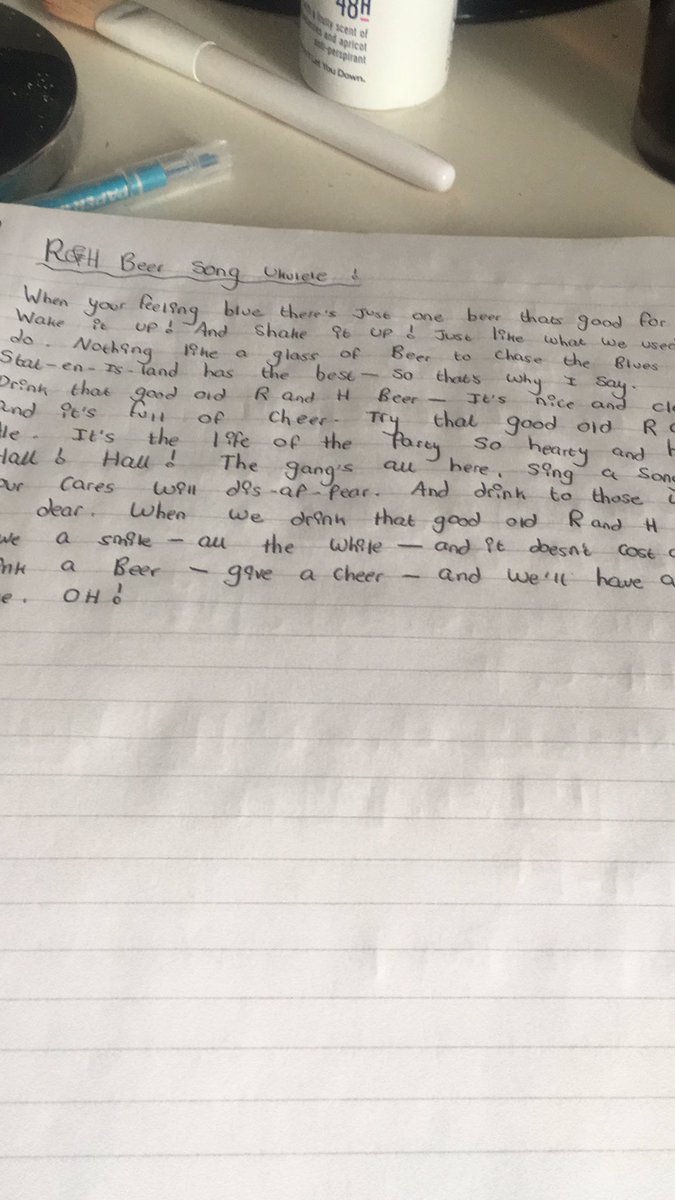 48H
scent of
and apricot
anti-perspirant
Let You Down.
PAPER
R&H Beer Song Ukulele !
When your feeling blue there's Just one beer thats good for
Wake it up! And Shake it up! Just like what we used
do. Nothing like a glass of Beer to chase the Blues
Stat-en-Is-land has the best - so that's why I say.
Drink that good old R and H Beer - It's nice and
and it's full of cheer. Try that good old R
It's the life of the Party so hearty and
Hall! Hall! The gang's all here, sing a song
our cares will dis-ap-pear. And drink to those
dear. When we drink that good old R and H
a smile - all the while - and it doesnt cost
a Beer - give a cheer - and we'll have a
OH!